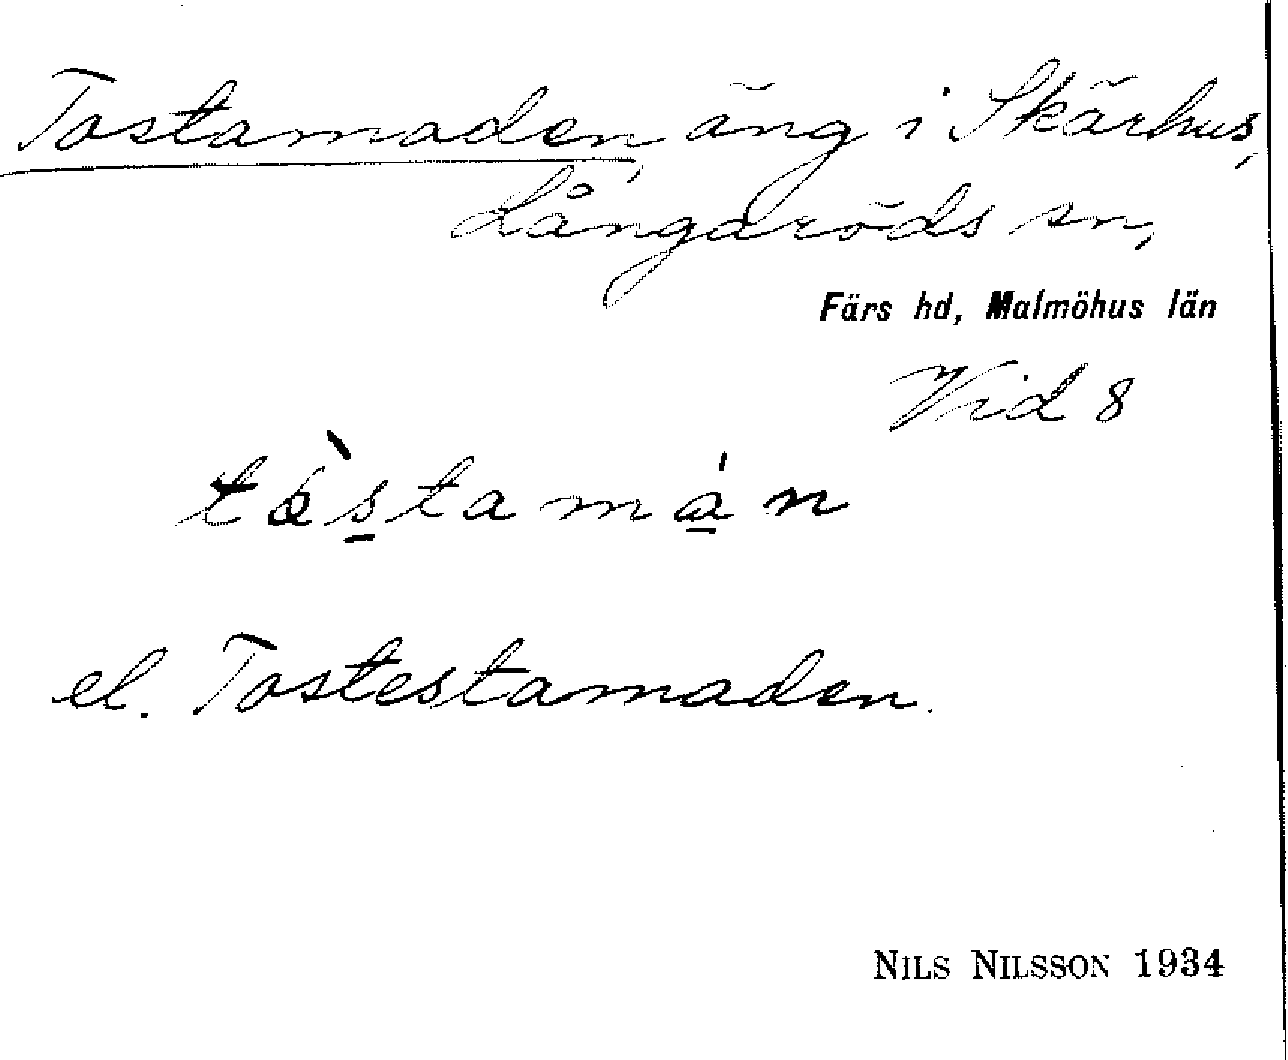 Tostamaden, äng i Skärhus,
Långaröds sn,
Färs hd, Malmöhus län
Vid 8
tòstamán
el. Tostestamaden.
NILS NILSSON 1934